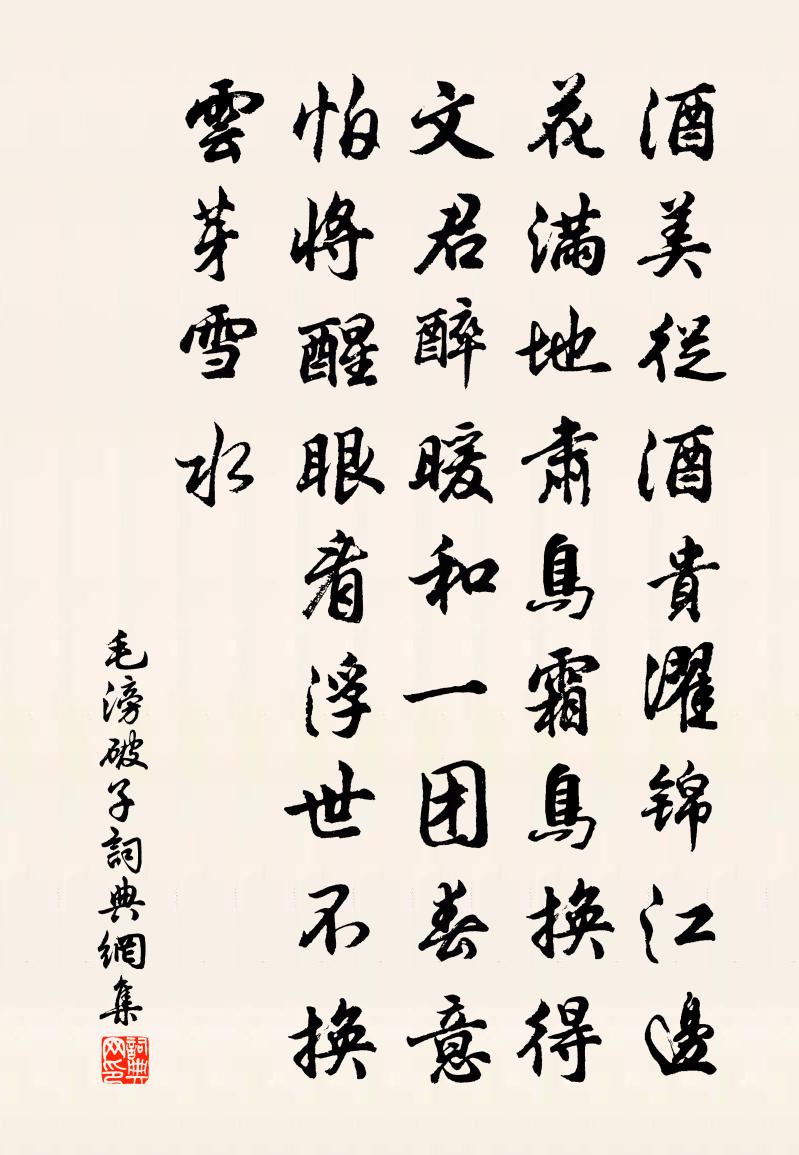 酒美從酒貴濯錦江邊
花滿地肅鳥霜鳥換得
文君醉暖和一团春意
怕将醒眼看浮世不換
雲芽雪水
毛滂破子詞典網集
詞典网印